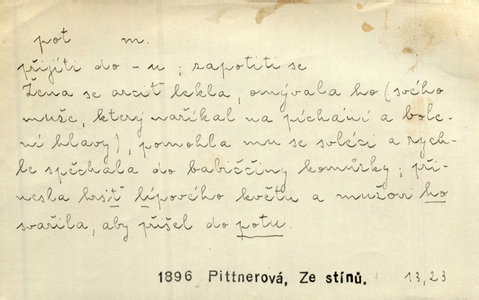 pot m.
přijíti do - u ; zapotiti se
Žena se arciť lekla, omývala ho (svého
muže, který naříkal na píchání a bole-
ní hlavy), pomohla mu se svléci a rych-
le spěchala do babiččiny komůrky ; při-
nesla hrsť lípového květu a mužovi ho
svařila, aby přišel do potu.
1896 Pittnerová, Ze stínů. 13,23